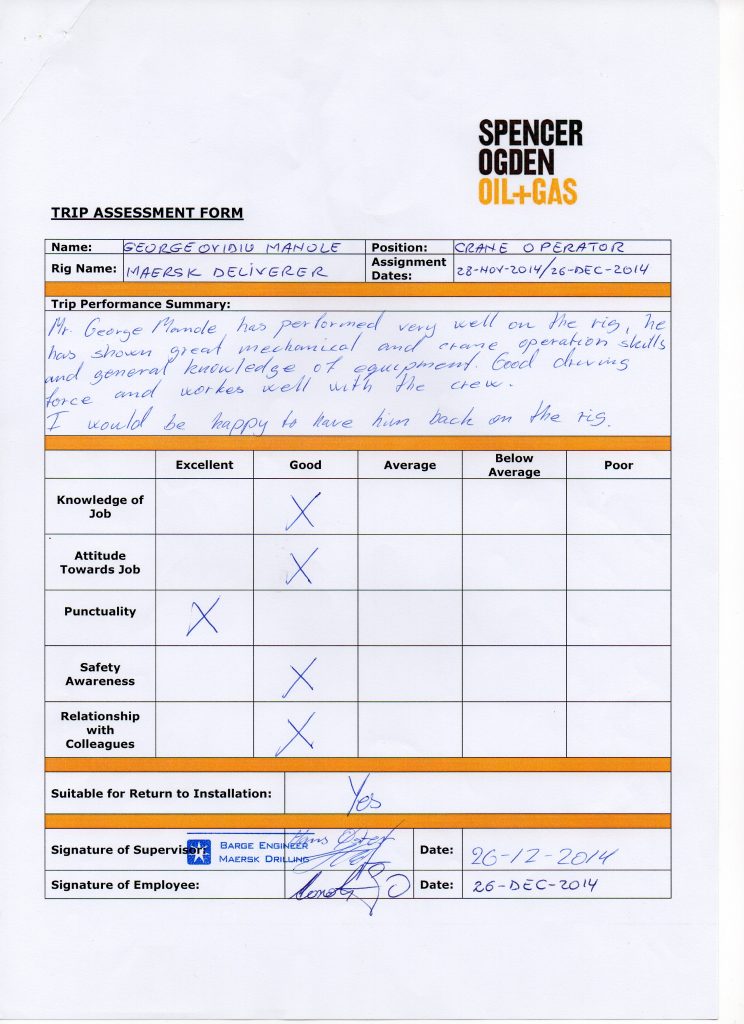 SPENCER
OGDEN
OIL+GAS
TRIP ASSESSMENT FORM
Name: GEORGE OVIDIU MANOLE Position: CRANE OPERATOR
Rig Name: MAERSK DELIVERER Assignment Dates: 28-NOV-2014/26-DEC-2014
Trip Performance Summary:
Mr. George Manole, has performed very well on the rig, he
has shown great mechanical and crane operation skills
and general knowledge of equipment. Good driving
force and workes well with the crew.
I would be happy to have him back on the rig.
Excellent Good Average Below Average Poor
Knowledge of Job X
Attitude Towards Job X
Punctuality X
Safety Awareness X
Relationship with Colleagues X
Suitable for Return to Installation: Yes
Signature of Supervisor: Hans Date: 26-12-2014
BARGE ENGINEER
MAERSK DRILLING
Signature of Employee: Date: 26-DEC-2014